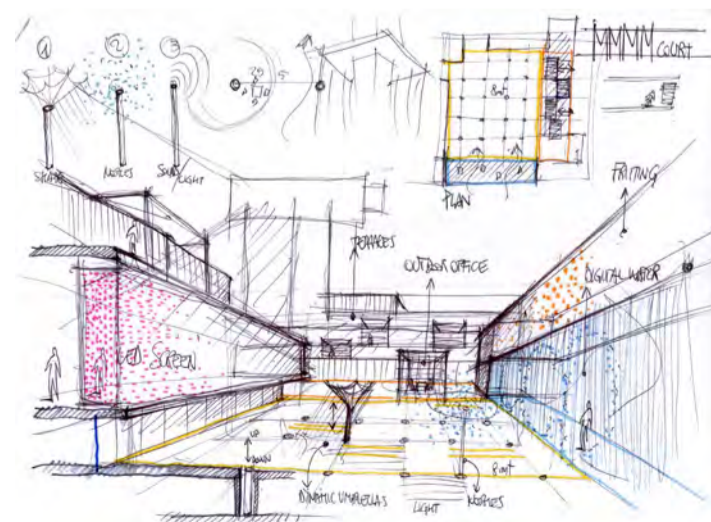 1
2
3
COURT
SHADE
NOZZLES
SOUND/
LIGHT
PLAN
FRITTING
TERRACES
OUTDOOR OFFICE
DIGITAL WATER
LED SCREEN
UP
DOWN
DYNAMIC UMBRELLAS
LIGHT
NOZZLES